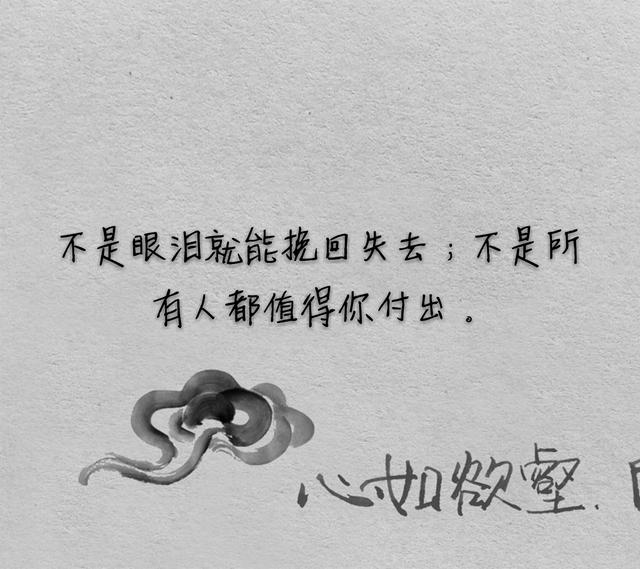 不是眼泪就能挽回失去；不是所
有人都值得你付出。
心如欲壑.